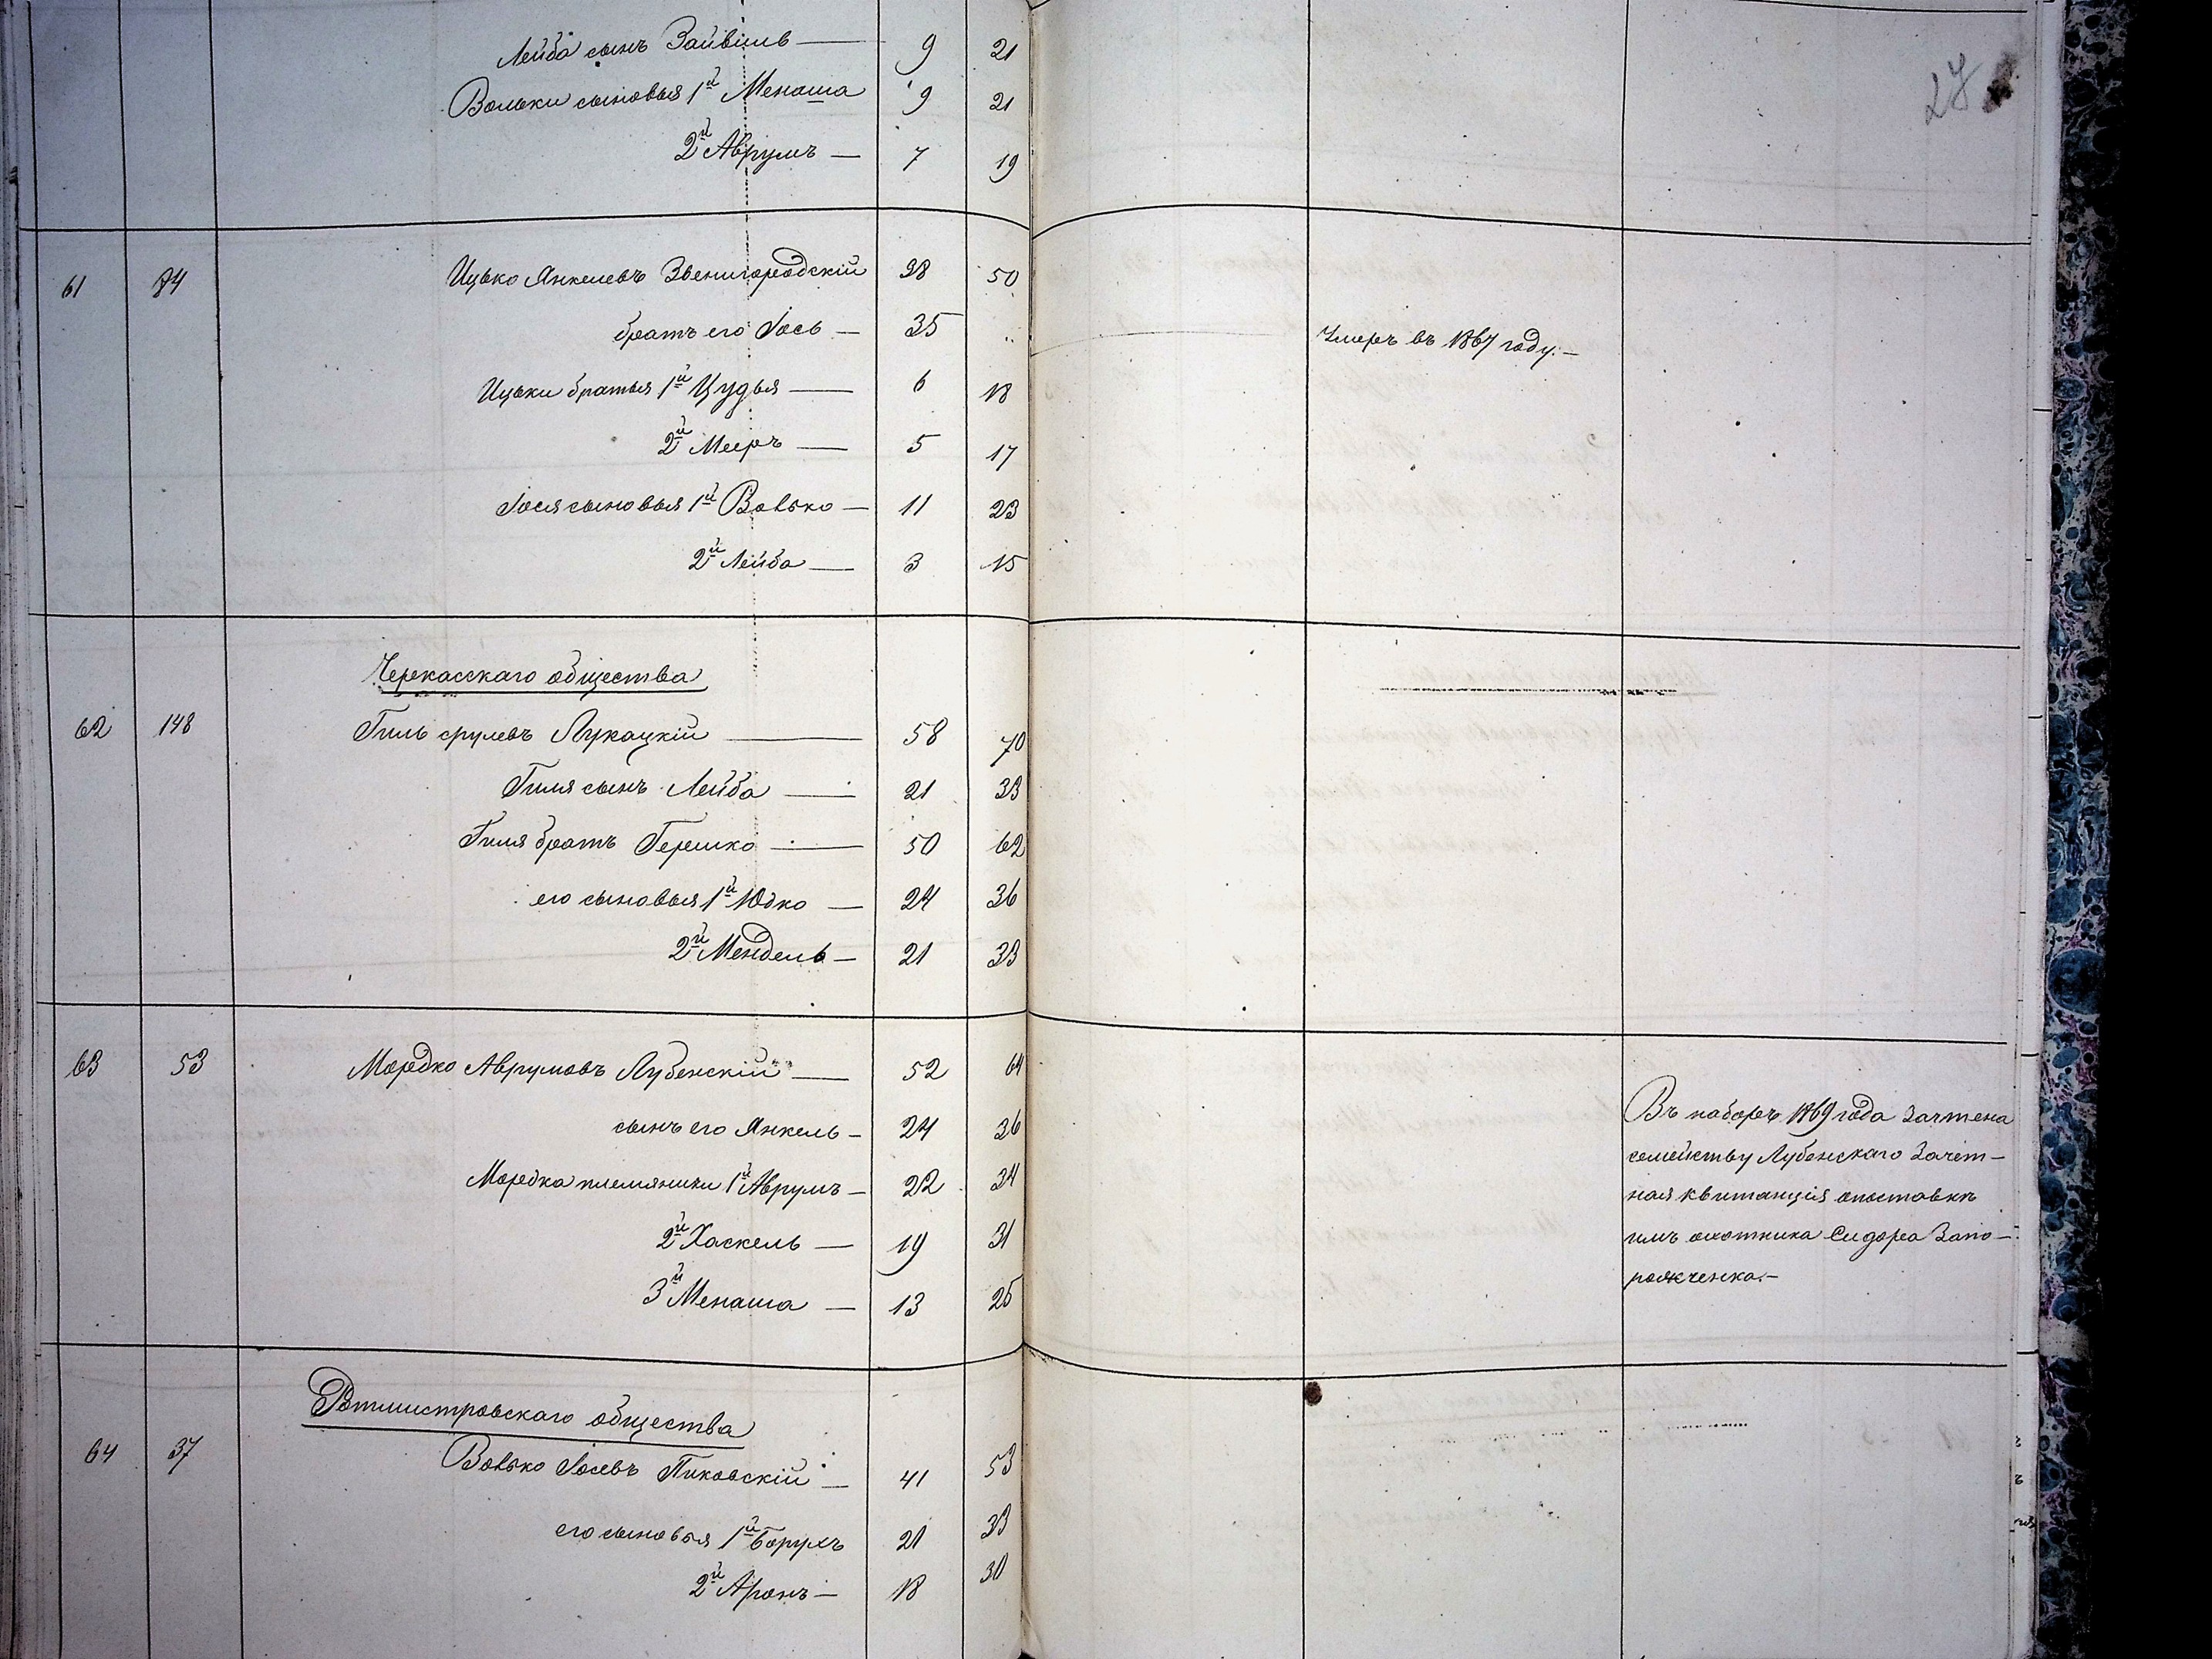 27
Лейба сынъ Зайвель — 9 21
Вольки сыновья 1й Менаша 9 21
2й Аврумъ — 7 19
61 84 Ицько Янкелевъ Звенигородскій 38 50
братъ его Іось — 35 " Умеръ въ 1867 году. —
Ицьки братья 1й Цудья — 6 18
2й Мееръ — 5 17
Іося сыновья 1й Вовько — 11 23
2й Лейба — 3 15
Черкасскаго общества
62 148 Гиль Срулевъ Лукацкій — 58 70
Гиля сынъ Лейба — 21 33
Гиля братъ Гершко — 50 62
его сыновья 1й Юдко — 24 36
2й Мендель — 21 33
63 53 Мордко Аврумовъ Лубенскій — 52 64
сынъ его Янкель — 24 36
Мордка племяники 1й Аврумъ — 22 34
2й Хаскель — 19 31
3й Менаша — 13 25
Въ наборъ 1869 года зачтена
семейству Лубенскаго зачет-
ная квитанція опоставкѣ
имъ охотника Сидора Запо-
рожченка. —
Ротмистровскаго общества
64 37 Вовько Іосевъ Пиковскій — 41 53
его сыновья 1й Борухъ 21 33
2й Аронъ — 18 30